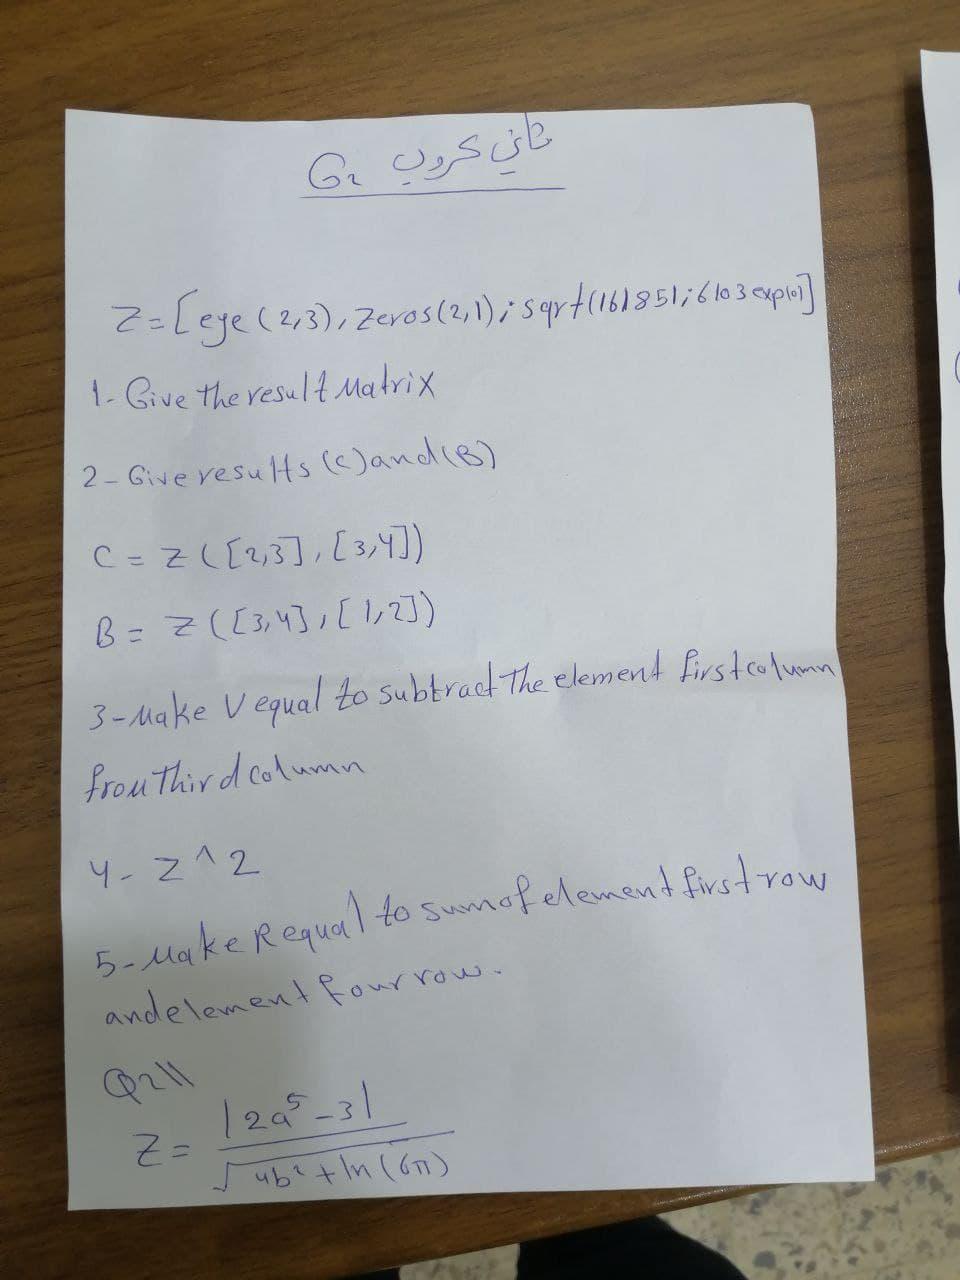 ثاني كروب G2
Z=[eye(2,3),zeros(2,1);sqrt(16)851;6103exp(0)]
1- Give the result Matrix
2- Give results (c) and (B)
C = Z([2,3],[3,4])
B = Z([3,4],[1,2])
3- Make V equal to subtract the element first column
from Third column
4- Z^2
5- Make R equal to sum of element first row
and element four row.
Q2\\
Z= |2a⁵-3|
√4b²+ln(6π)